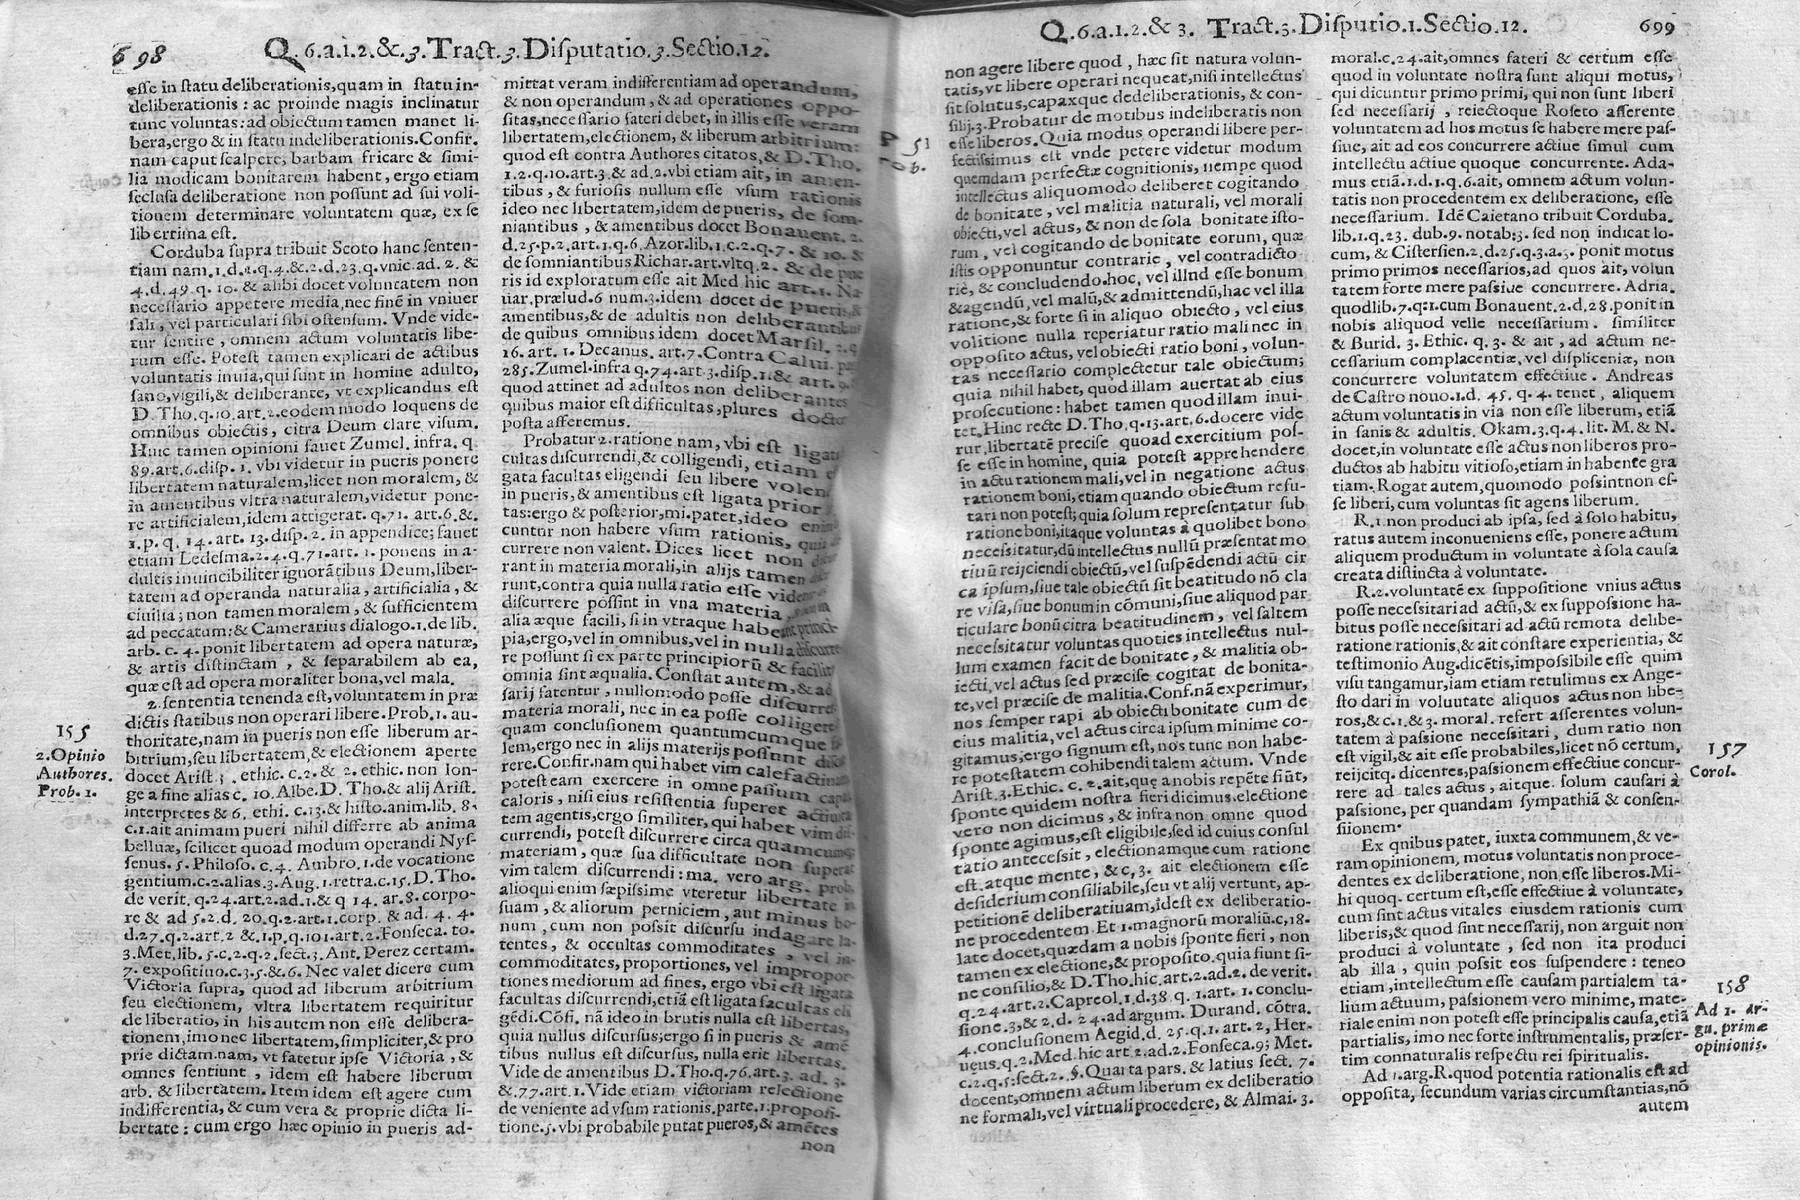 698
Q.6.a.1.2.&.3.Tract.3.Disputatio.3.Sectio.12.
esse in statu deliberationis,quam in statu in-
deliberationis : ac proinde magis inclinatur
tunc voluntas:ad obiectum tamen manet li-
bera,ergo & in statu indeliberationis.Confir.
nam caput scalpere, barbam fricare & simi-
lia modicam bonitatem habent, ergo etiam
seclusa deliberatione non possunt ad sui voli-
tionem determinare voluntatem quæ, ex se
libertima est.
Corduba supra tribuit Scoto hanc senten-
tiam nam.1.d.1.q.4.&.2.d.23.q.vnic.ad.2.&
4.d.49.q.10. & alibi docet voluntatem non
necessario appetere media,nec finē in vniuer
sali, vel particulari sibi ostensum. Vnde vide-
tur sentire, omnem actum voluntatis libe-
rum esse. Potest tamen explicari de actibus
voluntatis inuia,qui sunt in homine adulto,
sano,vigili,& deliberante, vt explicandus est
D.Tho.q.10.art.2.eodem modo loquens de
omnibus obiectis, citra Deum clare visum.
Huic tamen opinioni fauet Zumel. infra. q.
89.art.6.disp.1. vbi videtur in pueris ponere
libertatem naturalem,licet non moralem, &
in amentibus vltra naturalem,videtur pone-
re artificialem,idem attigerat. q.71. art.6.&.
1.p. q. 14. art. 13.disp. 2. in appendice; fauet
etiam Ledesma.2.4.q.71.art. 1. ponens in a-
dultis inuincibiliter ignorātibus Deum,liber-
tatem ad operanda naturalia, artificialia, &
ciuilia; non tamen moralem, & sufficientem
ad peccatum:& Camerarius dialogo.1.de lib.
arb. c. 4. ponit libertatem ad opera naturæ,
& artis distinctam, & separabilem ab ea,
quæ est ad opera moraliter bona,vel mala.
2. sententia tenenda est,voluntatem in præ
dictis statibus non operari libere.Prob.1. au-
thoritate,nam in pueris non esse liberum ar-
bitrium,seu libertatem,& electionem aperte
docet Arist 3. ethic. c.2.& 2. ethic. non lon-
ge a fine alias c. 10.Albe.D. Tho.& alij Arist.
interpretes & 6. ethi. c.13.& histo.anim.lib. 8.
c.1.ait animam pueri nihil differre ab anima
belluæ, scilicet quoad modum operandi Nys-
senus. 5. Philoso. c.4. Ambro.1.de vocatione
gentium.c.2.alias.3.Aug.1.retra.c.15.D.Tho.
de verit. q.24.art.2.ad.1.& q 14. ar.8.corpo-
re & ad 5.2.d. 20.q.2.art.1.corp. & ad. 4. 4.
d.27.q.2.art.2 &.1.p.q.101.art.2.Fonseca. to.
3.Met.lib.5.c.2.q.2.sect.3.Ant. Perez certam.
7. expositiuo.c.3.5.&.6. Nec valet dicere cum
Victoria supra, quod ad liberum arbitrium
seu electionem, vltra libertatem requiritur
deliberatio, in his autem non esse delibera-
tionem,imo nec libertatem,simpliciter,& pro
prie dictam.nam, vt fatetur ipse Victoria, &
omnes sentiunt, idem est habere liberum
arb. & libertatem. Item idem est agere cum
indifferentia, & cum vera & proprie dicta li-
bertate : cum ergo hæc opinio in pueris ad-
155
2.Opinio
Authores.
Prob. 1.
mittat veram indifferentiam ad operandum,
& non operandum, & ad operationes oppo-
sitas,necessario fateri debet, in illis esse veram
libertatem,electionem, & liberum arbitrium:
quod est contra Authores citatos,& D.Tho.
1.2.q.10.art.3.& ad.2.vbi etiam ait, in amen-
tibus, & furiosis nullum esse vsum rationis
ideo nec libertatem,idem de pueris, de som-
niantibus, & amentibus docet Bonauent. 2.
d.25.p.2.art.1.q.6. Azor.lib.1.c.2.q.7. & 10. &
de somniantibus Richar.art.vltq.2. & de pue
ris id exploratum esse ait Med hic art.1. Na
uar.prælud.6 num.3.idem docet de pueris,&
amentibus,& de adultis non deliberantibus
de quibus omnibus idem docet Marsil. 2.q
16. art. 1. Decanus. art.7.Contra Calui. pa
285.Zumel.infra q.74.art.3.disp.1.& art. 9.
quod attinet ad adultos non deliberantes
quibus maior est difficultas,plures docto
posta afferemus.
Probatur 2.ratione nam, vbi est ligata
cultas discurrendi,& colligendi, etiam e
gata facultas eligendi seu libere volen
in pueris, & amentibus est ligata prior
tas:ergo & posterior,mi.patet,ideo enim
cuntur non habere vsum rationis, quia
currere non valent. Dices licet non
rant in materia morali,in alijs tamen
runt,contra quia nulla ratio esse
discurrere possint in vna materia
alia æque facili, si in vtraque habeant princi-
pia,ergo,vel in omnibus,vel in nulla discurre
re possunt si ex parte principiorū & facilit
omnia sint æqualia. Constat autem, & ad
sarij fatentur, nullomodo posse discurre
materia morali, nec in ea posse colligere
quam conclusionem quantumcumque
lem,ergo nec in alijs materijs possunt
rere.Confir.nam qui habet vim calefactiuam
potest eam exercere in omne passum
caloris, nisi eius resistentia superet
tem agentis,ergo similiter, qui habet vim
currendi, potest discurrere circa quamcumque
materiam, quæ sua difficultate non superat
vim talem discurrendi : ma. vero arg. prob.
alioqui enim sæpissime vteretur libertate in
suam, & aliorum perniciem, aut minus bo-
num, cum non possit discursu indagare la-
tentes, & occultas commoditates, vel in-
commoditates, proportiones, vel impropor-
tiones mediorum ad fines, ergo vbi est ligata
facultas discurrendi,etiā est ligata facultas eli
gēdi.Cōfi. nā ideo in brutis nulla est libertas,
quia nullus discursus;ergo si in pueris & amē
tibus nullus est discursus, nulla erit libertas.
Vide de amentibus D.Tho.q.76.art.3. ad. 3.
&.77.art.1.Vide etiam victoriam relectione
de veniente ad vsum rationis.parte.1.proposi-
tione.5.vbi probabile putat pueros,& amētes
non
Q.6.a.1.2.& 3. Tract.3.Disputio.1.Sectio.12.
699
non agere libere quod, hæc sit natura volun-
tatis,vt libere operari nequeat,nisi intellectus
sit solutus,capaxque dedeliberationis, & con-
silij.3.Probatur de motibus indeliberatis non
esse liberos.Quia modus operandi libere per-
fectissimus est vnde petere videtur modum
quemdam perfectæ cognitionis, nempe quod
intellectus aliquomodo deliberet cogitando
de bonitate, vel malitia naturali, vel morali
obiecti,vel actus, & non de sola bonitate isto-
rum, vel cogitando de bonitate eorum, quæ
istis opponuntur contrarie, vel contradicto
riē, & concludendo.hoc, vel illud esse bonum
&agendū,vel malū,& admittendū,hac vel illa
ratione,& forte si in aliquo obiecto, vel eius
volitione nulla reperiatur ratio mali nec in
opposito actus, vel obiecti ratio boni, volun-
tas necessario complectetur tale obiectum;
quia nihil habet, quod illam auertat ab eius
prosecutione: habet tamen quod illam inui-
tet.Hinc recte D.Tho.q.13.art.6.docere vide
tur,libertatē precise quoad exercitium pos-
se esse in homine, quia potest apprehendere
in actu rationem mali,vel in negatione actus
rationem boni,etiam quando obiectum refu-
tari non potest; quia solum repræsentatur sub
ratione boni,itaque voluntas à quolibet bono
necessitatur,dū intellectus nullū præsentat mo
tiuū reijciendi obiectū,vel suspēdendi actū cir
ca ipsum,siue tale obiectū sit beatitudo nō cla
re visa,siue bonum in cōmuni,siue aliquod par
ticulare bonū citra beatitudinem, vel saltem
necessitatur voluntas quoties intellectus nul-
lum examen facit de bonitate, & malitia ob-
iecti,vel actus sed præcise cogitat de bonita-
te,vel præcise de malitia.Conf.nā experimur,
nos semper rapi ab obiecti bonitate cum de
eius malitia, vel actus circa ipsum minime co-
gitamus,ergo signum est,nos tunc non habe-
re potestatem cohibendi talem actum. Vnde
Arist.3.Ethic. c. 2.ait,quę a nobis repēte fiūt,
sponte quidem nostra fieri dicimus.electione
vero non dicimus, & infra non omne quod
sponte agimus,est eligibile,sed id cuius consul
tatio antecessit, electionamque cum ratione
est.atque mente, & c, 3. ait electionem esse
desiderium consiliabile,seu vt alij vertunt, ap-
petitionē deliberatiuam,idest ex deliberatio-
ne procedentem. Et 1.magnorū moraliū.c,18.
late docet,quædam a nobis sponte fieri, non
tamen ex electione,& proposito.quia fiunt si-
ne consilio,& D.Tho.hic.art.2.ad.2. de verit.
q.24.art.2.Capreol.1.d.38.q.1.art. 1. conclu-
sione.3,& 2.d. 24.ad argum. Durand. cōtra.
4.conclusionem Aegid.d. 25.q.1. art. 2, Her-
ueus.q.2.Med.hic art 2.ad.2.Fonseca.9; Met.
c.2.q.5:sect.2. §.Quarta pars. & latius sect. 7.
docent,omnem actum liberum ex deliberatio
ne formali,vel virtuali procedere, & Almai. 3.
moral.c.24.ait,omnes fateri & certum esse
quod in voluntate nostra sunt aliqui motus,
qui dicuntur primo primi, qui non sunt liberi
sed necessarij, reiectoque Roseto asserente
voluntatem ad hos motus se habere mere pas-
siue, ait ad eos concurrere actiue simul cum
intellectu actiue quoque concurrente. Ada-
mus etiā.1.d.1.q.6.ait, omnem actum volun-
tatis non procedentem ex deliberatione, esse
necessarium. Idē Caietano tribuit Corduba.
lib.1.q.23. dub.9. notab:3. sed non indicat lo-
cum, & Cistersien.2.d.25.q.3.a.3. ponit motus
primo primos necessarios,ad quos ait, volun
tatem forte mere passiue concurrere. Adria.
quodlib.7.q:1.cum Bonauent.2.d,28.ponit in
nobis aliquod velle necessarium. similiter
& Burid. 3. Ethic. q. 3. & ait, ad actum ne-
cessarium complacentiæ, vel displicentiæ, non
concurrere voluntatem effectiue. Andreas
de Castro nouo.1.d. 45. q. 4. tenet, aliquem
actum voluntatis in via non esse liberum, etiā
in sanis & adultis. Okam.3.q.4. lit. M. & N.
docet,in voluntate esse actus non liberos pro-
ductos ab habitu vitioso,etiam in habente gra
tiam. Rogat autem,quomodo possintnon es-
se liberi, cum voluntas sit agens liberum.
R.1.non produci ab ipsa, sed à solo habitu,
ratus autem inconueniens esse, ponere actum
aliquem productum in voluntate à sola causa
creata distincta à voluntate.
R.2.voluntatē ex suppositione vnius actus
posse necessitari ad actū,& ex suppossione ha-
bitus posse necessitari ad actū remota delibe-
ratione rationis,& ait constare experientia, &
testimonio Aug.dicētis,impossibile esse quim
visu tangamur,iam etiam retulimus ex Ange-
sto dari in voluntate aliquos actus non libe-
ros,&c.1.& 3. moral. refert asserentes volun-
tatem à passione necessitari, dum ratio non
est vigil,& ait esse probabiles,licet nō certum,
reijcitq. dicentes,passionem effectiue concur-
rere ad tales actus, aitque. solum causari à
passione, per quandam sympathiā & consen-
siionem.
Ex quibus patet, iuxta communem,& ve-
ram opinionem, motus voluntatis non proce-
dentes ex deliberatione, non esse liberos.Mi-
hi quoq. certum est,esse effectiue à voluntate,
cum sint actus vitales eiusdem rationis cum
liberis,& quod sint necessarij, non arguit non
produci à voluntate, sed non ita produci
ab illa, quin possit eos suspendere : teneo
etiam,intellectum esse causam partialem ta-
lium actuum, passionem vero minime, mate-
riale enim non potest esse principalis causa,etiā
partialis, imo nec forte instrumentalis, præser-
tim connaturalis respectu rei spiritualis.
Ad 1.arg.R.quod potentia rationalis est ad
opposita, secundum varias circumstantias,nō
autem
157
Corol.
158
Ad 1. ar-
gu. primæ
opinionis.